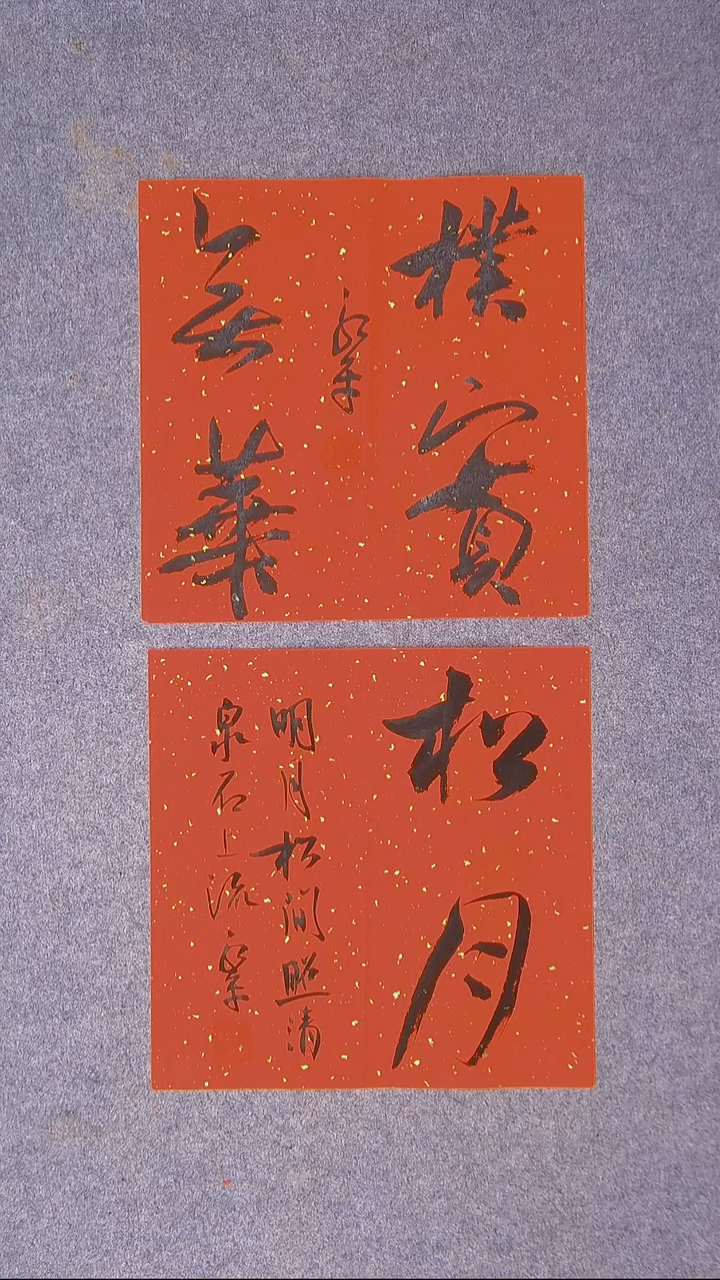 樸實
無華
松月
明月松間照清
泉石上流